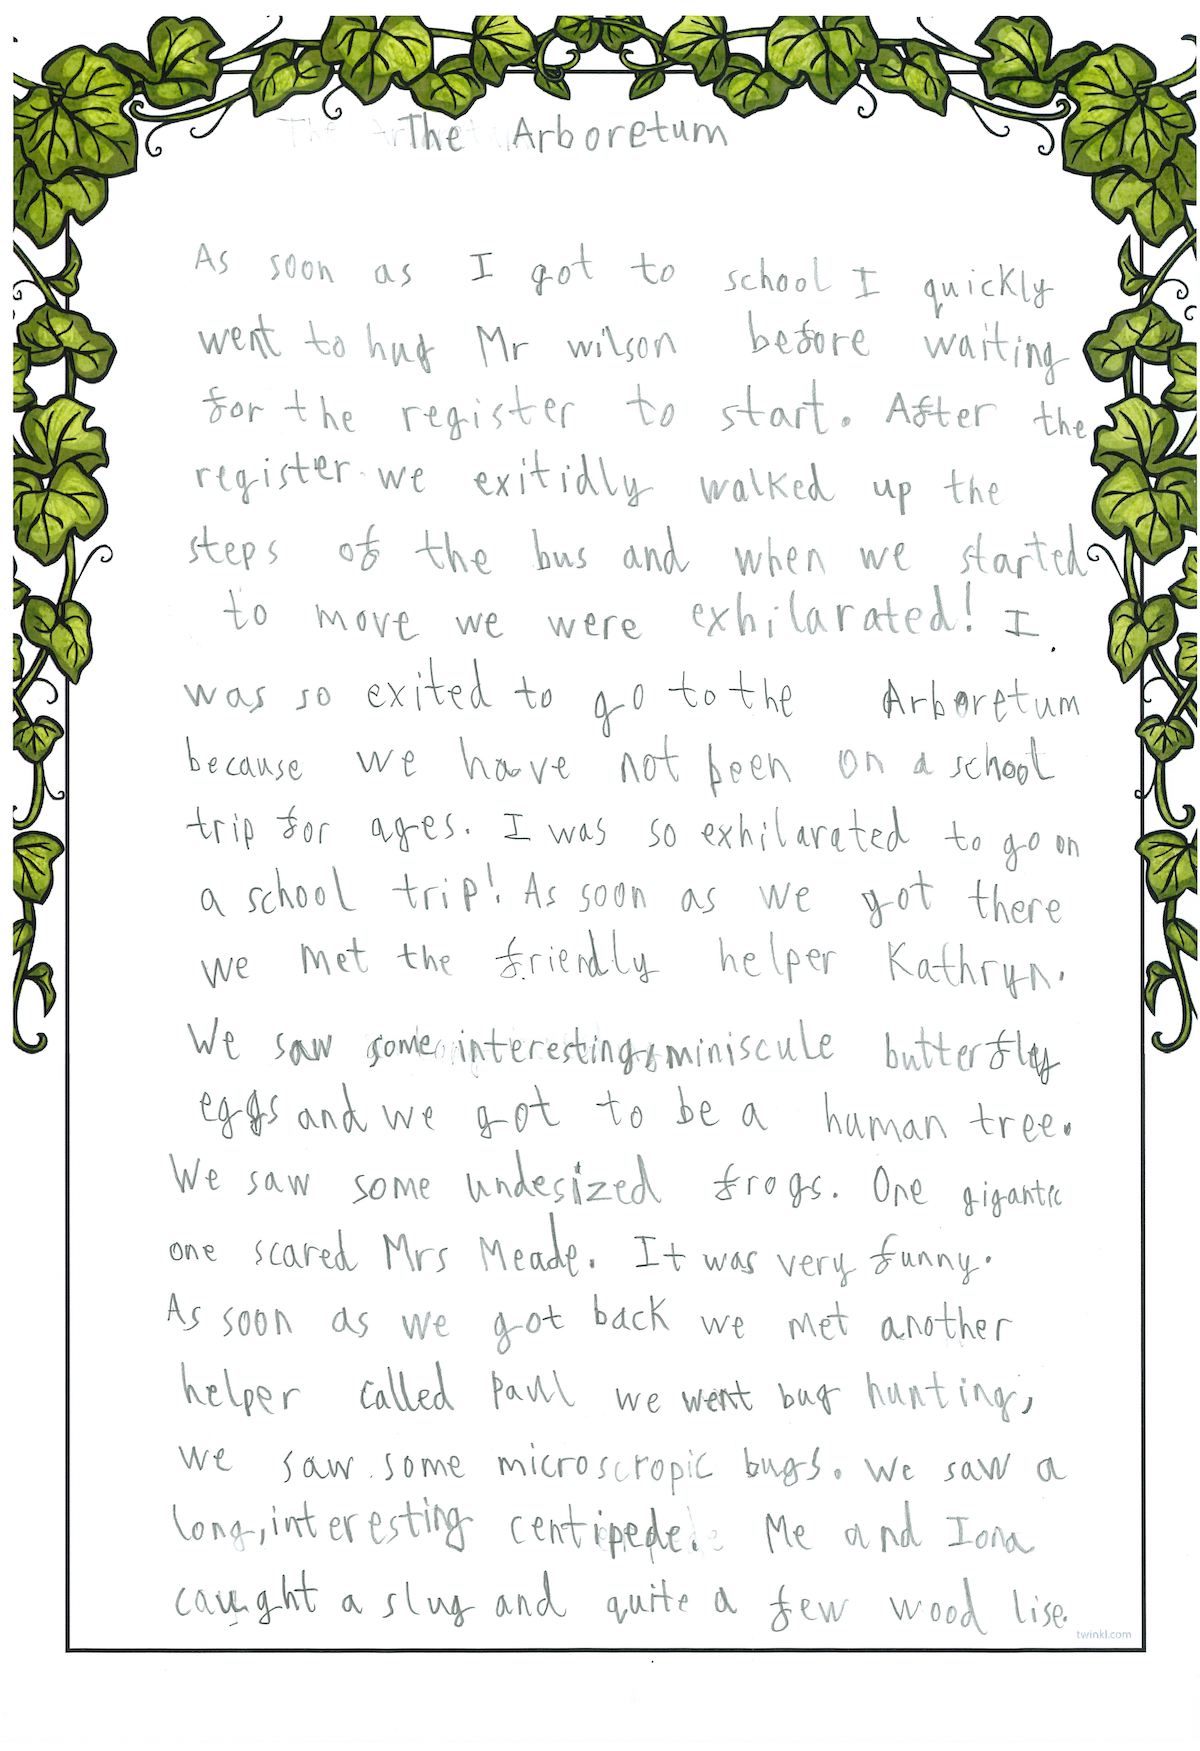 The Arboretum
As soon as I got to school I quickly
went to hug Mr wilson before waiting
for the register to start. After the
register we exitidly walked up the
steps of the bus and when we started
to move we were exhilarated! I
was so exited to go to the Arboretum
because we have not been on a school
trip for ages. I was so exhilarated to go on
a school trip! As soon as we got there
we met the friendly helper Kathryn.
We saw some interesting, miniscule butterfly
eggs and we got to be a human tree.
We saw some undesized frogs. One gigantic
one scared Mrs Meade. It was very funny.
As soon as we got back we met another
helper called Paul we went bug hunting,
we saw some microscropic bugs. We saw a
long, interesting centipede. Me and Iona
caught a slug and quite a few wood lise.
twinkl.com